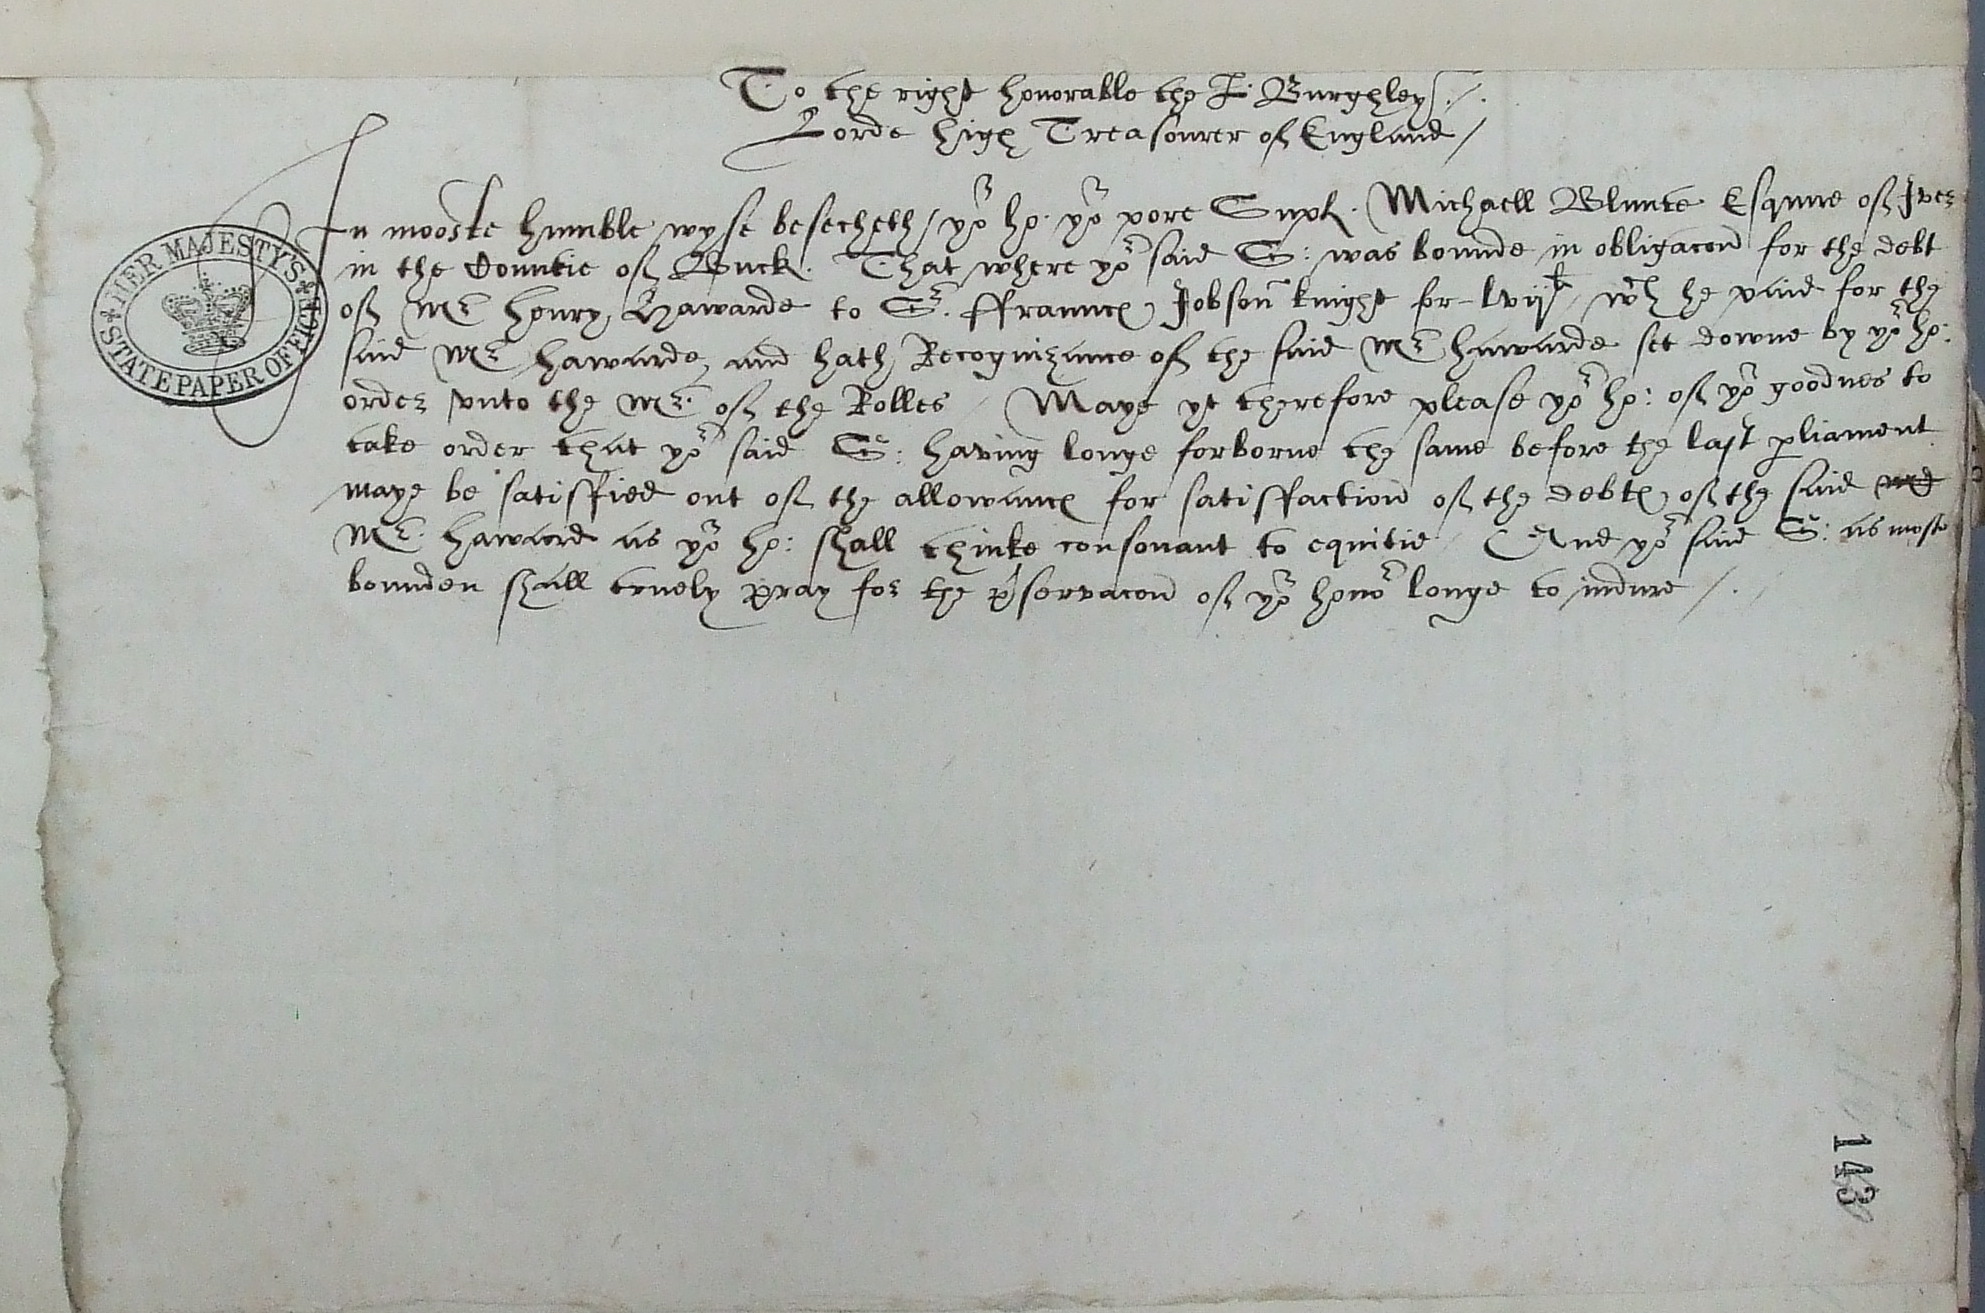 To the right honorable the L: Burghley /.
Lorde high Treasourer of England /
In mooste humble wyse besecheth / yor ho. yor pore Supl. Michaell Blunte Esquire of Iver
in the Countie of Buck. That where yor said S: was bounde in obligacon for the debt
of Mr Henry Hawarde to Sr. ffraunc Jobson knight for lvijl wch he paid for the
said Mr hawarde and hath Recognizance of the said Mr hawarde set downe by yor ho:
order vnto the Mr. of the Rolles / Maye yt therefore please yor ho: of yor goodnes to
take order that yor said S: having longe forborne the same before the last pliament
maye be satisfied out of the allowanc for satisfaction of the debt of the said
Mr. haward as yor ho: shall thinke consonant to equitie / And yor said S: as most
bounden shall truely pray for the pservacon of yor honor longe to indure /.
HER MAJESTY'S STATE PAPER OFFICE
143